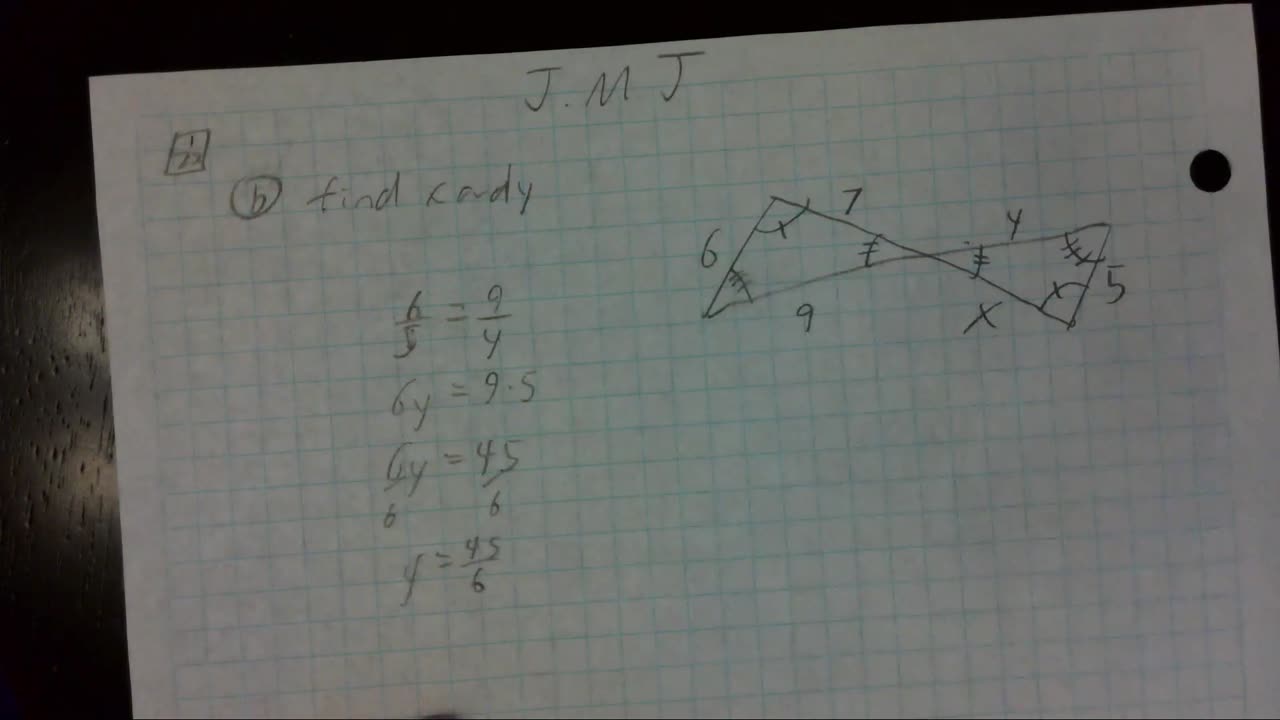 J.M J
ⓑ find x and y
6/5 = 9/y
6y = 9·5
6y/6 = 45/6
y = 45/6
7
6
9
y
5
x